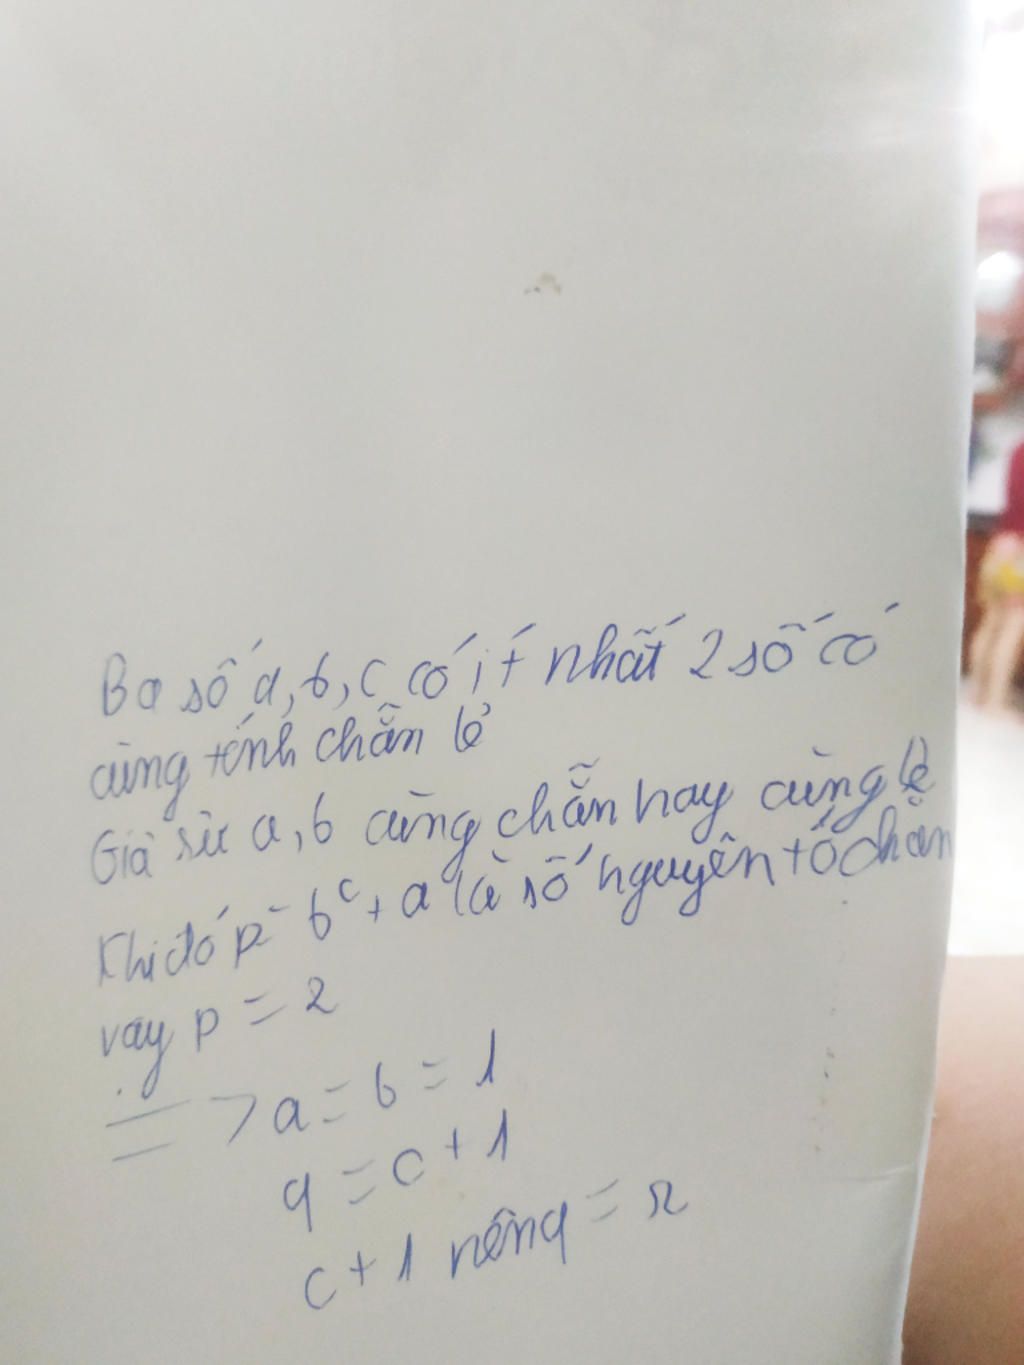 Ba số a, b, c có ít nhất 2 số có
cùng tính chẵn lẻ
Giả sử a, b cùng chẵn hay cùng lẻ
Khi đó p = b^c + a là số nguyên tố chẵn
vay p = 2
=> a = b = 1
q = c + 1
c + 1 nên q = r